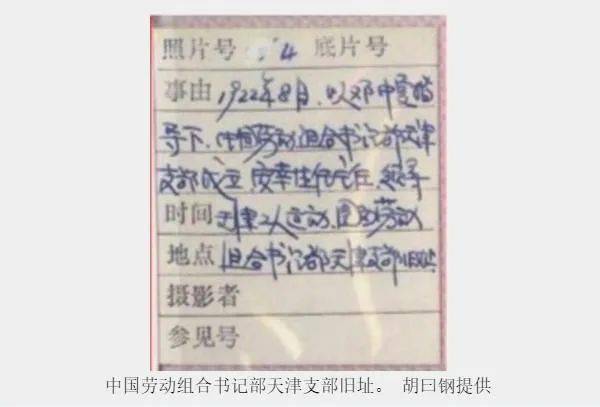 照片号 54 底片号
事由 1922年8月,以邓中夏指
导下,中国劳动组合书记部天津
支部成立,安幸生任主任,领导
时间 天津工人运动,图为劳动
地点 组合书记部天津支部旧址
摄影者
参见号
中国劳动组合书记部天津支部旧址。 胡曰钢提供